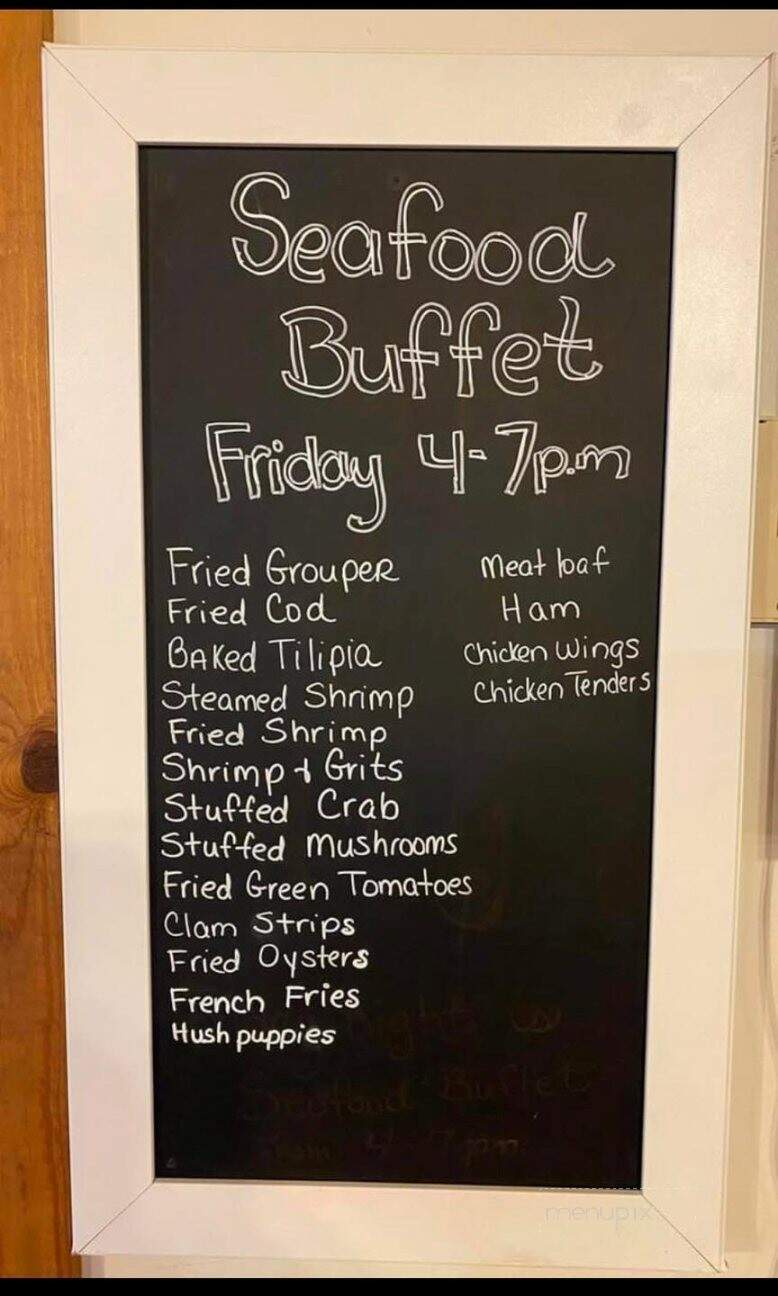 Seafood
Buffet
Friday 4-7p.m
Fried Grouper
Fried Cod
Baked Tilipia
Steamed Shrimp
Fried Shrimp
Shrimp & Grits
Stuffed Crab
Stuffed Mushrooms
Fried Green Tomatoes
Clam Strips
Fried Oysters
French Fries
Hush puppies
Meat loaf
Ham
Chicken Wings
Chicken Tenders
Seafood Buffet
menupix